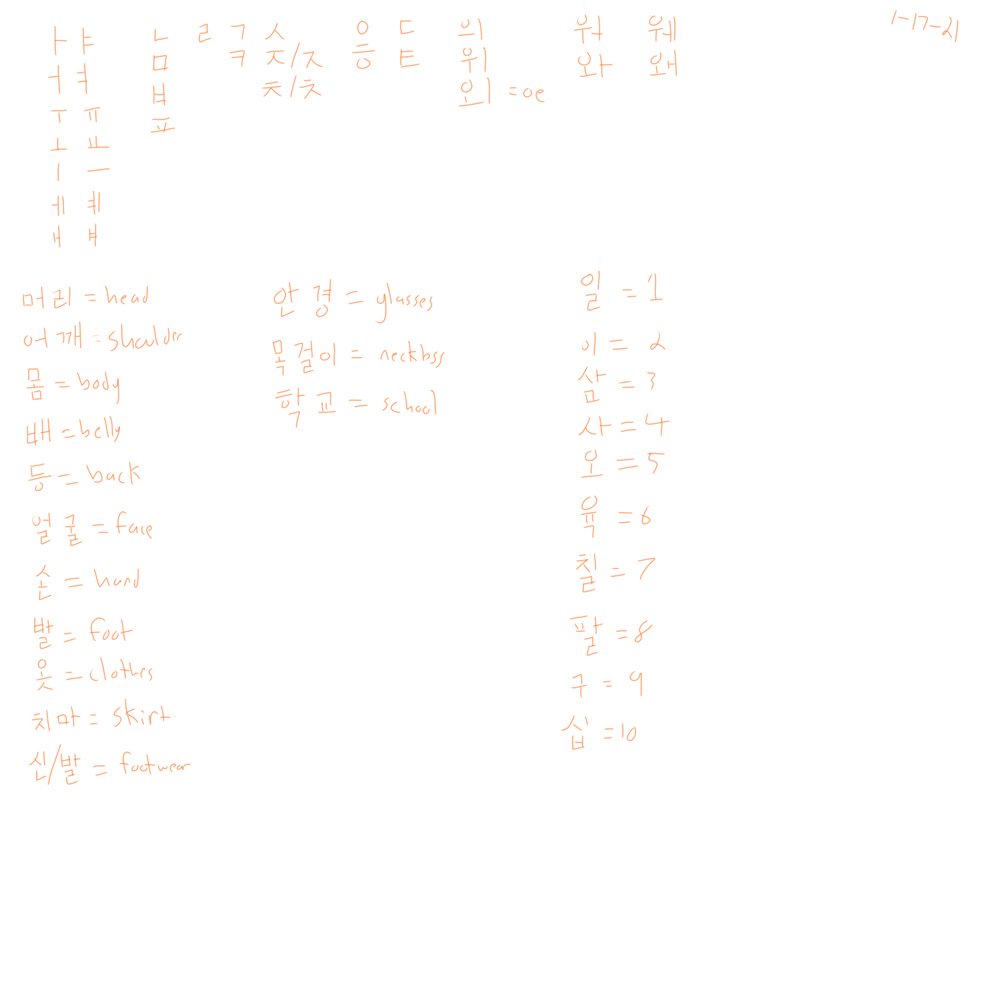 ㅏ ㅑ ㄴ ㄹ ㄱ ㅅ ㅇ ㄷ 의 워 웨 1-17-21
ㅓ ㅕ ㅁ ㅋ ㅈ/ㅈ ㅎ ㅌ 위 와 왜
ㅜ ㅠ ㅂ ㅊ/ㅊ 외 = oe
ㅗ ㅛ ㅍ
ㅣ ㅡ
ㅔ ㅖ
ㅐ ㅒ
머리 = head
어깨 = shoulder
몸 = body
배 = belly
등 = back
얼굴 = face
손 = hand
발 = foot
옷 = clothes
치마 = skirt
신/발 = footwear
안경 = glasses
목걸이 = necklass
학교 = school
일 = 1
이 = 2
삼 = 3
사 = 4
오 = 5
육 = 6
칠 = 7
팔 = 8
구 = 9
십 = 10